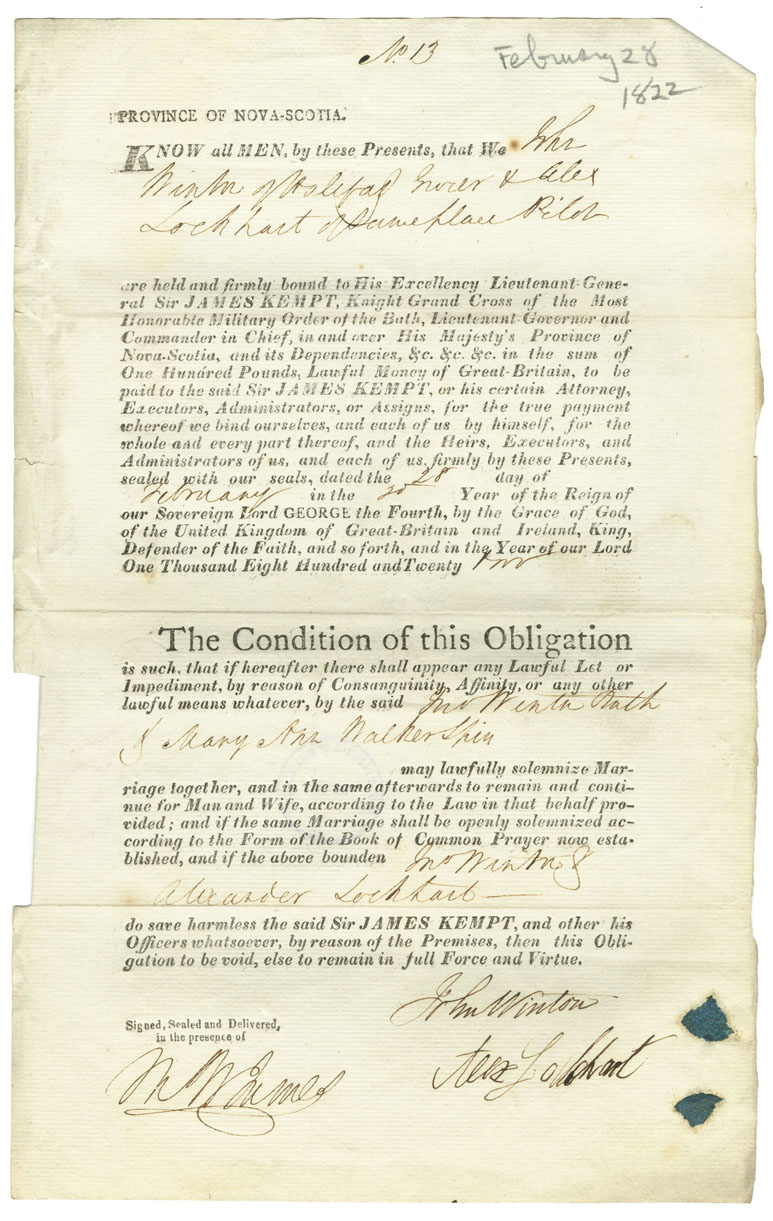 No 13
February 28
1822
PROVINCE OF NOVA-SCOTIA.
KNOW all MEN, by these Presents, that We John
Winton of Halifax & Alex
Lockhart of Same place Pilot
are held and firmly bound to His Excellency Lieutenant-Gene-
ral Sir JAMES KEMPT, Knight Grand Cross of the Most
Honorable Military Order of the Bath, Lieutenant-Governor and
Commander in Chief, in and over His Majesty's Province of
Nova-Scotia, and its Dependencies, &c. &c. &c. in the sum of
One Hundred Pounds, Lawful Money of Great-Britain, to be
paid to the said Sir JAMES KEMPT, or his certain Attorney,
Executors, Administrators, or Assigns, for the true payment
whereof we bind ourselves, and each of us by himself, for the
whole and every part thereof, and the Heirs, Executors, and
Administrators of us, and each of us, firmly by these Presents,
sealed with our seals, dated the 28 day of
February in the Year of the Reign of
our Sovereign Lord GEORGE the Fourth, by the Grace of God,
of the United Kingdom of Great-Britain and Ireland, King,
Defender of the Faith, and so forth, and in the Year of our Lord
One Thousand Eight Hundred and Twenty two
The Condition of this Obligation
is such, that if hereafter there shall appear any Lawful Let or
Impediment, by reason of Consanguinity, Affinity, or any other
lawful means whatever, by the said Jno Winton Bach
& Mary Ann Walker Spin
may lawfully solemnize Mar-
riage together, and in the same afterwards to remain and conti-
nue for Man and Wife, according to the Law in that behalf pro-
vided; and if the same Marriage shall be openly solemnized ac-
cording to the Form of the Book of Common Prayer now esta-
blished, and if the above bounden Jno Winton &
Alexander Lockhart
do save harmless the said Sir JAMES KEMPT, and other his
Officers whatsoever, by reason of the Premises, then this Obli-
gation to be void, else to remain in full Force and Virtue.
John Winton
Signed, Sealed and Delivered,
in the presence of
Alex Lockhart